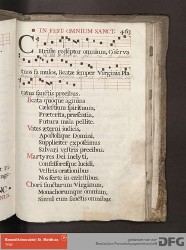 IN FESTO OMNIUM SANCT. 463
Christe redemptor omnium, Conserva
tuos famulos, Beatæ semper Virginis Pla-
catus sanctis precibus.
Beata quoque agmina
Cælestium spirituum,
Præterita, præsentia,
Futura mala pellite.
Vates æterni judicis,
Apostolique Domini,
Suppliciter exposcimus
Salvari vestris precibus.
Martyres Dei inclyti,
Confessoresque lucidi,
Vestris orationibus
Nos ferte in cælestibus.
Chori sanctarum Virginum,
Monachorumque omnium,
Simul cum sanctis omnibus
DFG